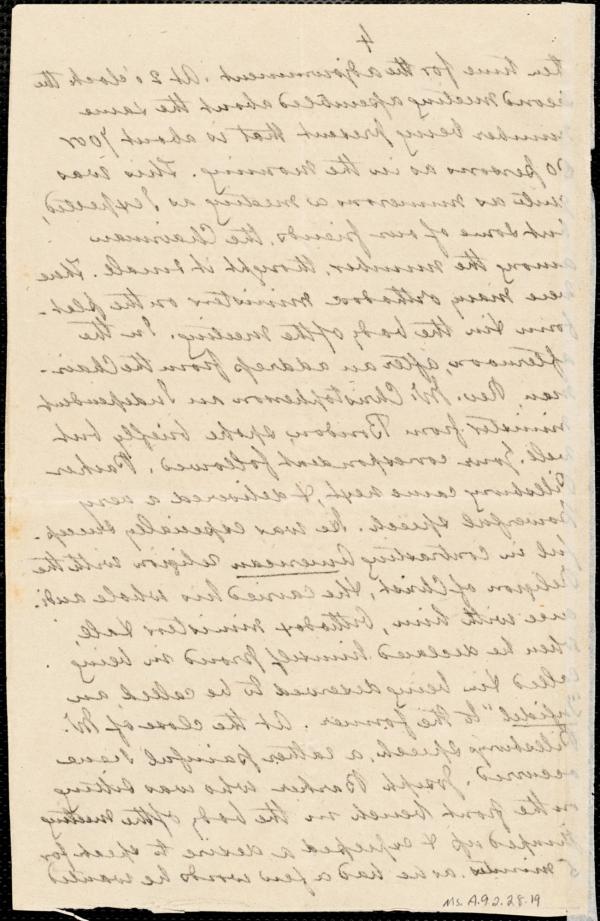 4
ten time for the adjournment. At 2 o'clock the
second meeting assembled about the same
number being present that is about 700 or
persons as in the morning. This was
quite as numerous a meeting as I expected,
but some of our friends, the Chairman
among the number, thought it small. There
were many orthodox ministers on the plat-
form & in the body of the meeting. In the
afternoon, after an address from the Chair-
man, Rev. Mr. Christopherson an Independent
minister from Bondon, spoke briefly but
well. Your correspondent followed. Parker
Pillsbury came next, & delivered a very
powerful speech. He was especially success-
ful in contrasting American religion with the
religion of Christ, & he carried his whole audi-
ence with him, Orthodox ministers & all,
when he declared himself proud in being
called & in being deserved to be called, an
"infidel" to the former. At the close of Mr.
Pillsbury's speech, a rather painful scene
occurred. Joseph Barker who was sitting
on the front bench in the body of the meeting
jumped up & expressed a desire to speak for
5 minutes as he had a few words he wanted
Ms. A.9.2.28.19